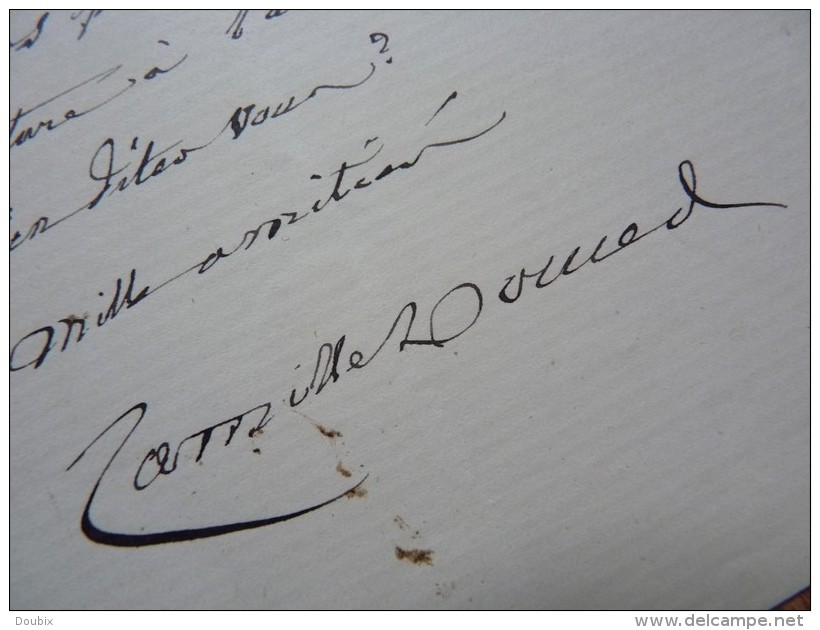 ture à
en dites vous?
mille amitiés
Camille Doucet
Doubix
www.delcampe.net